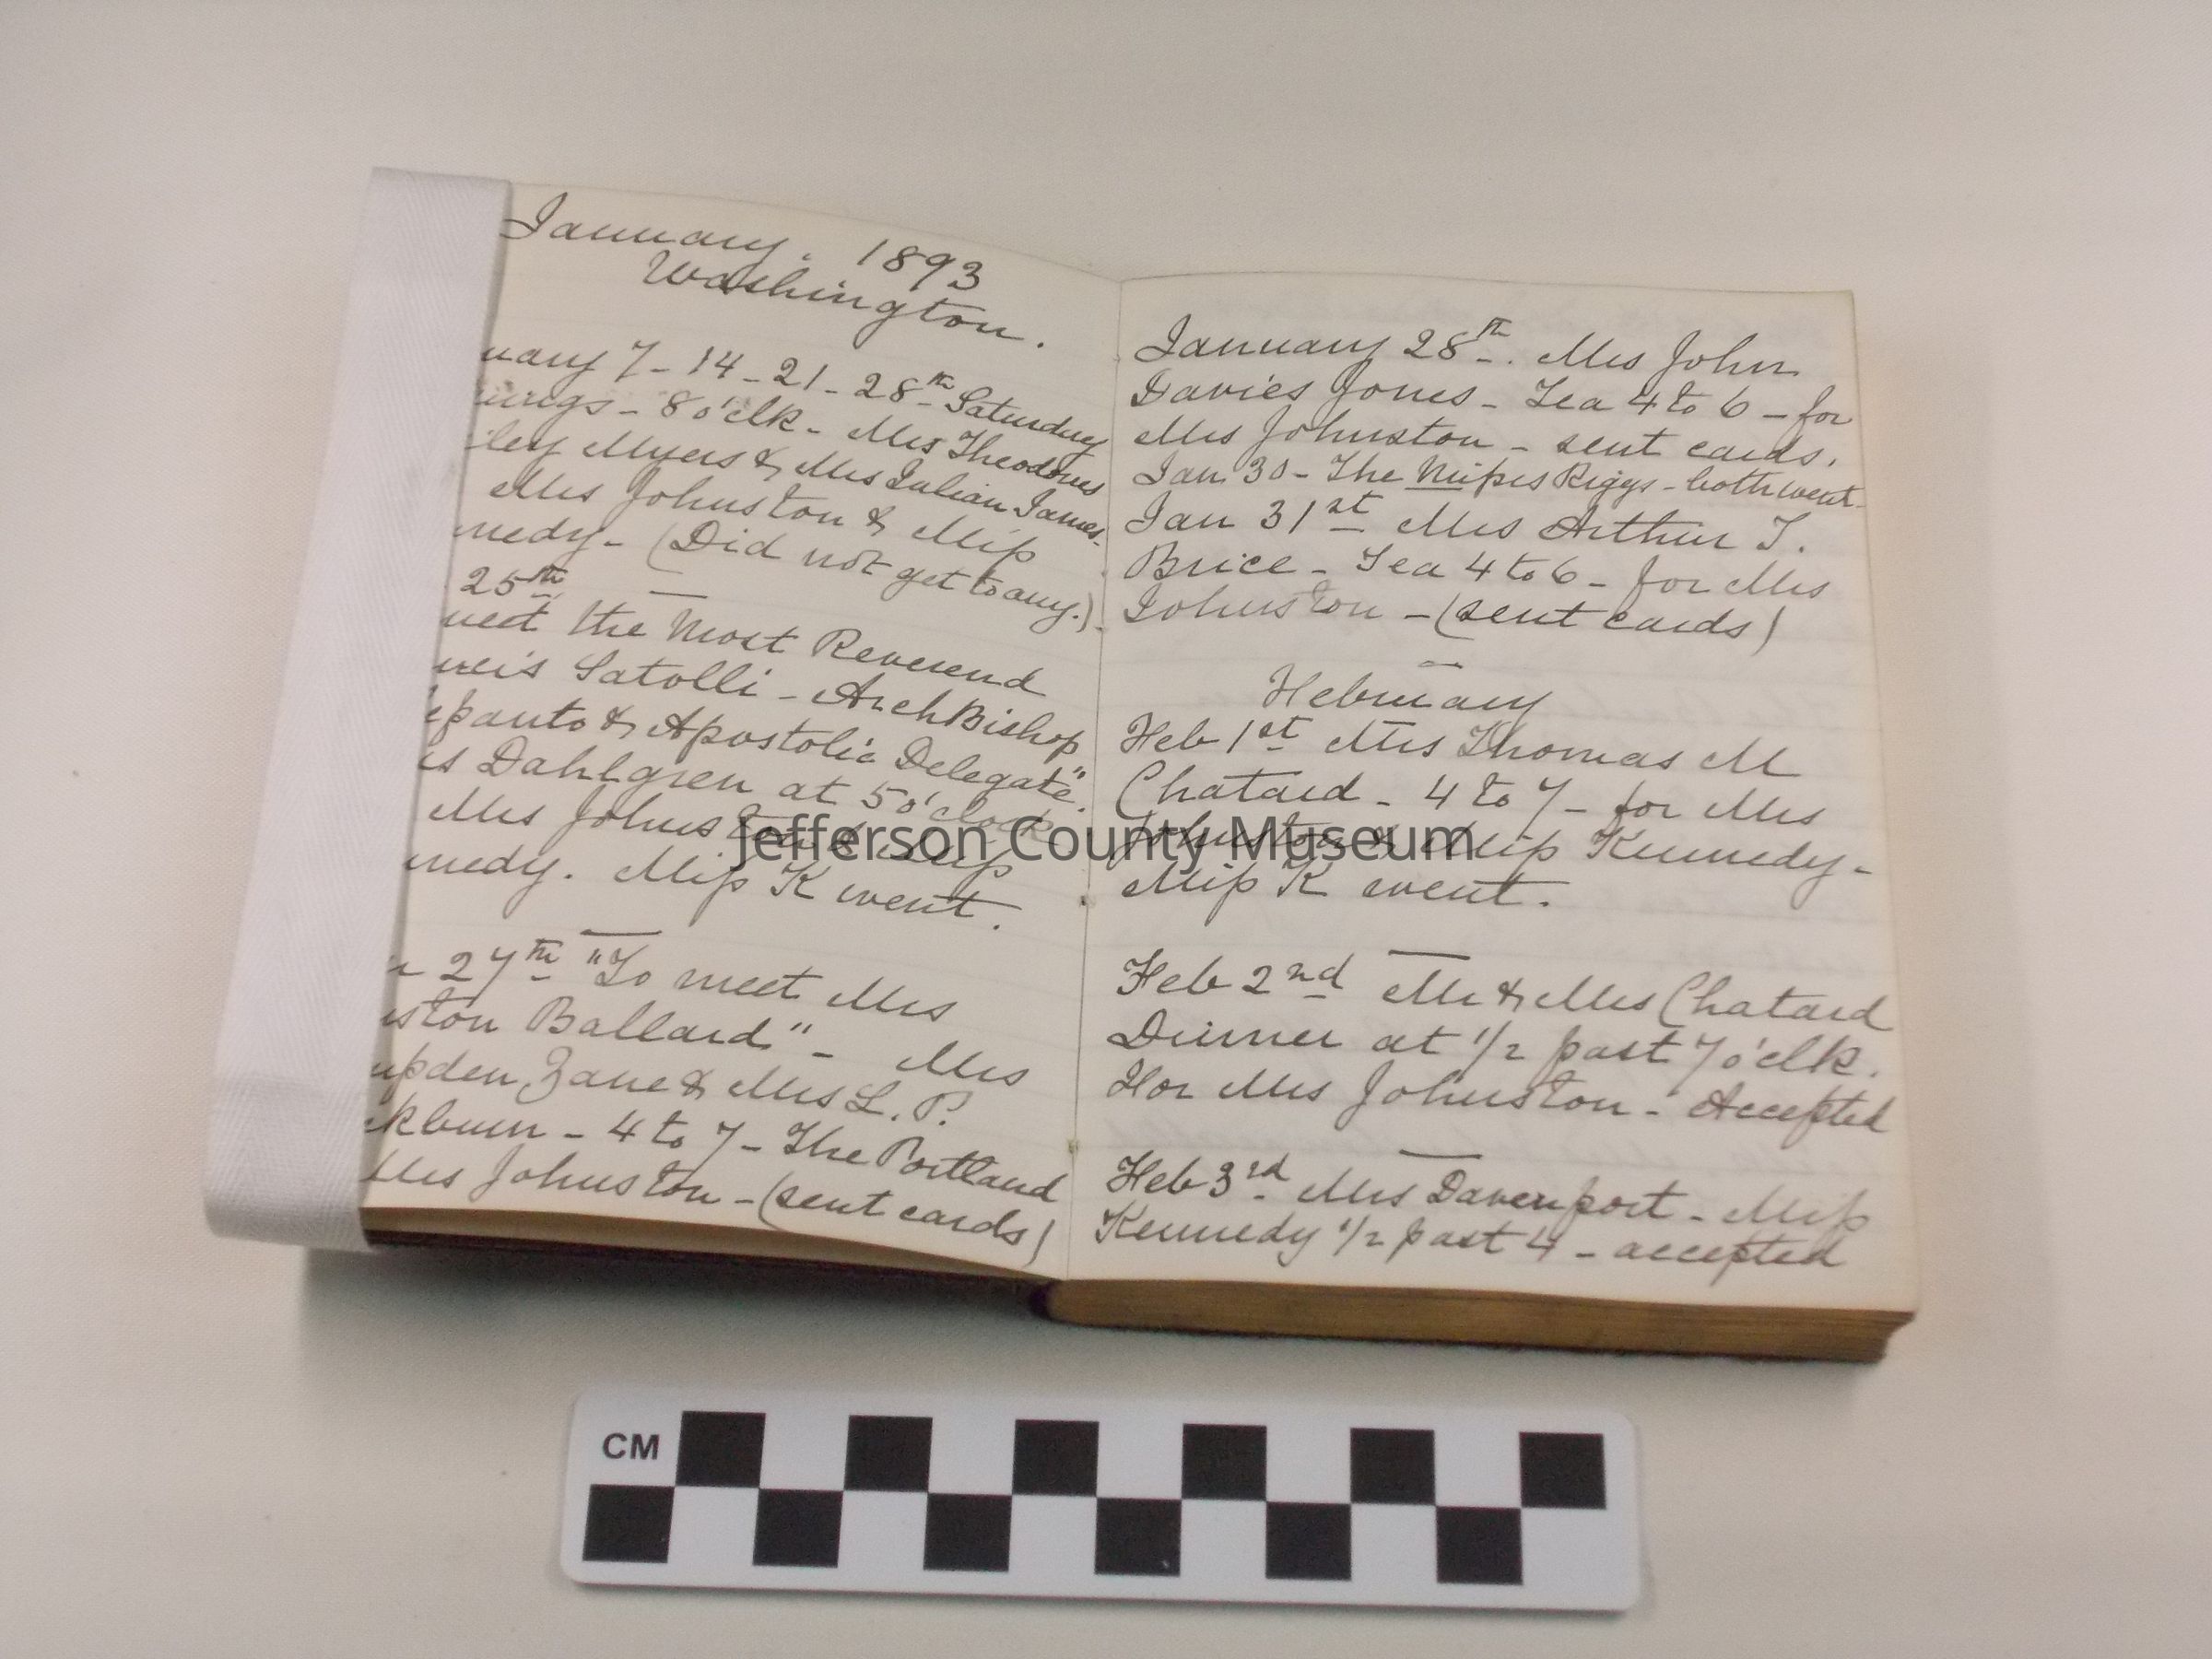 January. 1893
Washington.
uary 7 - 14 - 21 - 28th Saturday
- 8 o'clk - Mrs Theodorus
ley Myers & Mrs Julian James.
Mrs Johnston & Miss
nedy - (Did not get to any.)
25th
meet the Most Reverend
Satolli - ArchBishop
epanto & Apostolic Delegate".
Dahlgren at 5 o'clock
Mrs Johnston & Miss
nedy. Miss K went.
27th "To meet Mrs
ston Ballard" - Mrs
pden Zane & Mrs L. P.
ckburn - 4 to 7 - The Portland
Mrs Johnston - (sent cards)
January 28th. Mrs John
Davies Jones - Tea 4 to 6 - for
Mrs Johnston - sent cards.
Jan 30 - The Misses Riggs - both went.
Jan 31st Mrs Arthur T.
Brice - Tea 4 to 6 - for Mrs
Johnston - (sent cards)
February
Feb 1st Mrs Thomas M
Chatard - 4 to 7 - for Mrs
Johnston & Miss Kennedy -
Miss K went.
Feb 2nd Mr & Mrs Chatard
Dinner at 1/2 past 7 o'clk.
For Mrs Johnston - Accepted
Feb 3rd. Mrs Davenport - Miss
Kennedy 1/2 past 4 - accepted
Jefferson County Museum
CM